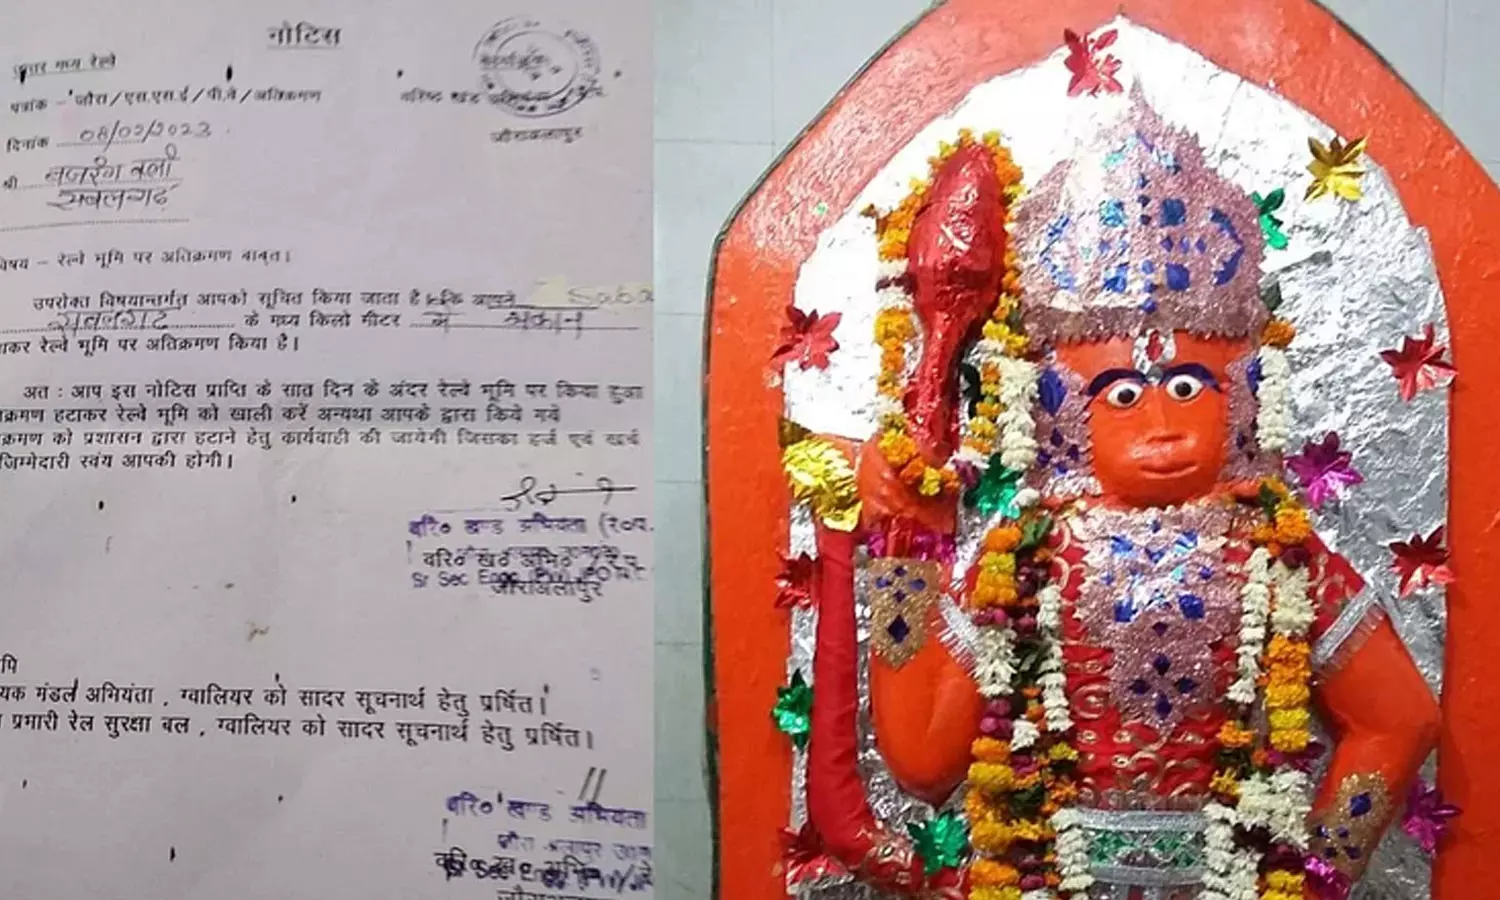 नोटिस
उत्तर मध्य रेल्वे
पत्रांक - जौरा/एस.एस.ई/पी.वे/अतिक्रमण
वरिष्ठ खंड
दिनांक 08/02/2023
जौराअलापुर
श्री बजरंग बली
सबलगढ़
विषय - रेल्वे भूमि पर अतिक्रमण बाबत।
उपरोक्त विषयान्तर्गत आपको सूचित किया जाता है कि आपने Saba
सबलगढ़ के मध्य किलो मीटर में मकान
रेल्वे भूमि पर अतिक्रमण किया है।
अत : आप इस नोटिस प्राप्ति के सात दिन के अंदर रेल्वे भूमि पर किया हुआ
क्रमण हटाकर रेल्वे भूमि को खाली करें अन्यथा आपके द्वारा किये गये
क्रमण को प्रशासन द्वारा हटाने हेतु कार्यवाही की जायेगी जिसका हर्ज एवं खर्च
जिम्मेदारी स्वंय आपकी होगी।
वरि० खण्ड अभियता (र०प.
वरि० ख० अभि०
Sr Sec Engg
जौराअलापुर
पि
यक मंडल अभियंता , ग्वालियर को सादर सूचनार्थ हेतु प्रर्षित।
प्रभारी रेल सुरक्षा बल , ग्वालियर को सादर सूचनार्थ हेतु प्रर्षित।
वरि० खण्ड अभियता